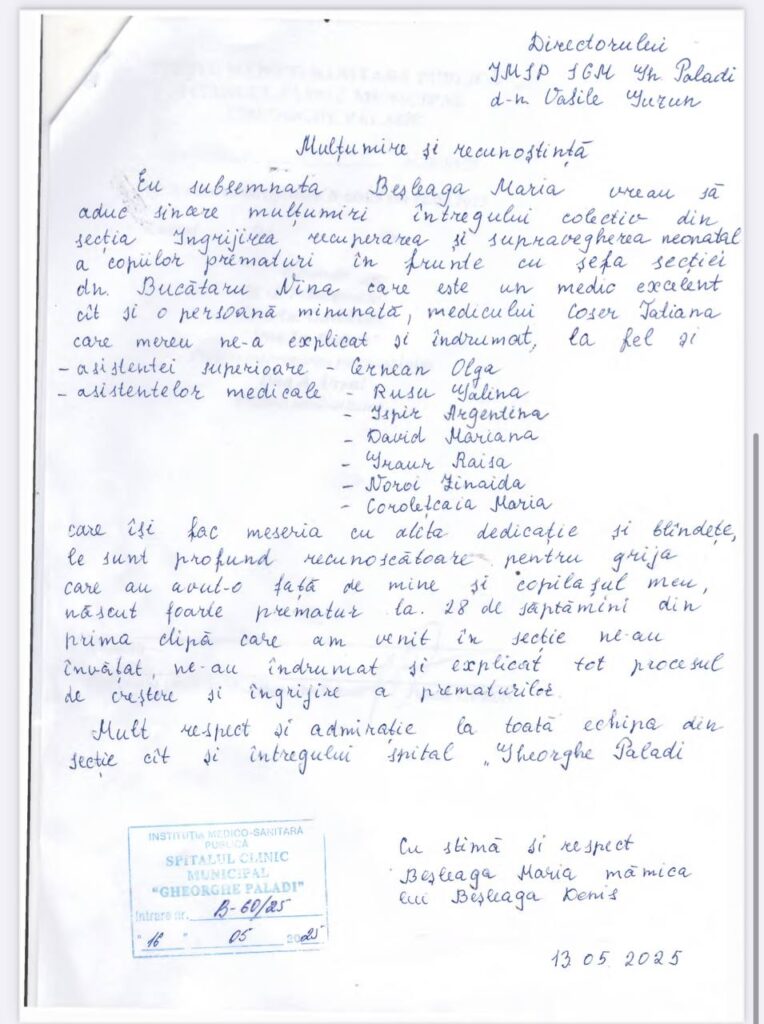 Directorului
IMSP SCM Gh. Paladi
d-n Vasile Gurun
Mulțumire și recunoștință
Eu subsemnata Beșleaga Maria vreau să
aduc sincere mulțumiri întregului colectiv din
secția Ingrijirea recuperarea și supravegherea neonatal
a copiilor prematuri în frunte cu șefa secției
dn. Bucătaru Nina care este un medic excelent
cît și o persoană minunată, medicului Coser Tatiana
care mereu ne-a explicat și îndrumat, la fel și
- asistentei superioare - Cernean Olga
- asistentelor medicale - Rusu Galina
- Ispir Argentina
- David Mariana
- Graur Raisa
- Noroi Zinaida
- Corolețcaia Maria
care își fac meseria cu atîta dedicație și blîndețe,
le sunt profund recunoscătoare pentru grija
care au avut-o față de mine și copilașul meu,
născut foarte prematur la. 28 de săptămîni din
prima clipă care am venit în secție ne-au
învățat, ne-au îndrumat și explicat tot procesul
de creștere și îngrijire a prematurilor.
Mult respect și admirație la toată echipa din
secție cît și întregului spital „Gheorghe Paladi
Cu stimă și respect
Beșleaga Maria mămica
lui Beșleaga Denis
13.05.2025
INSTITUȚIA MEDICO-SANITARĂ
PUBLICĂ
SPITALUL CLINIC
MUNICIPAL
"GHEORGHE PALADI"
Intrare nr. B-60/25
"16" 05 2025